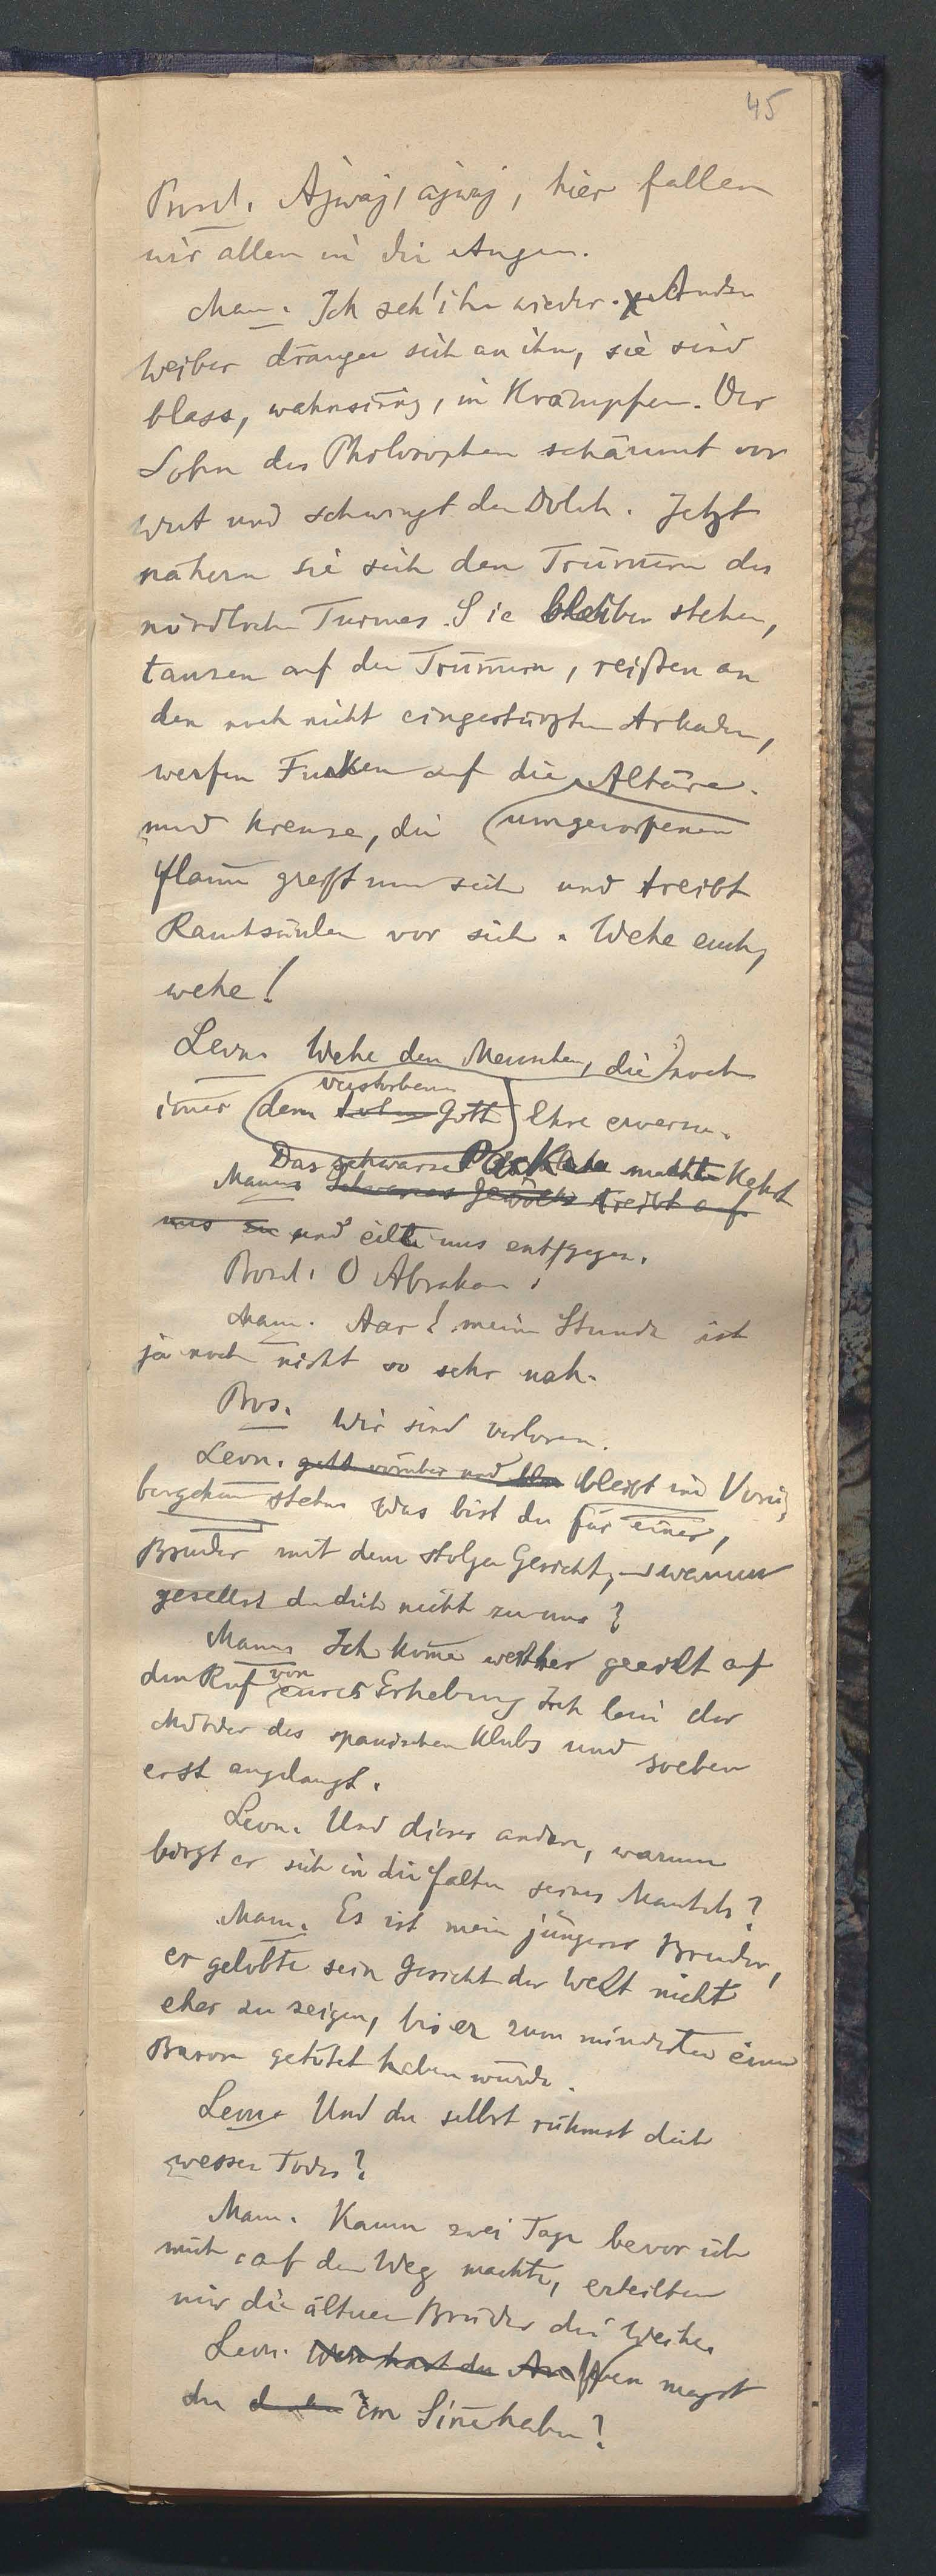 45
Ajwaj, ajwaj, hier fallen
wir allen in die Augen.
Man. Ich seh' ihn wieder. Andere
Weiber drängen sich an ihn, sie sind
blass, wahnsinnig, in Krämpfen. Der
Sohn des Philosophen schäumt vor
Wut und schwingt den Dolch. Jetzt
nähern sie sich den Trümmern des
nördlichen Turmes. Sie bleiben stehen,
tanzen auf den Trümmern, reißen an
den noch nicht eingestürzten Arkaden,
werfen Funken auf die Altäre
und Kreuze, die umgeworfenen
Flamme greift um sich und treibt
Rauchsäulen vor sich. Wehe euch,
wehe!
Leon. Wehe den Menschen, die noch
verstorbenen
immer dem Gott Ehre erweisen.
Das schwarze macht Kehrt
Mann. Schwarzes Gewölk treibt auf
uns zu und eilt uns entgegen.
O Abraham!
Mann. Aar! meine Stunde ist
ja noch nicht so sehr nah.
Wir sind verloren.
Leon. geht vorüber und bleibt im Vorü-
bergehen stehen Was bist du für einer,
Bruder mit dem stolzen Gesicht, warum
gesellst du dich nicht zu uns?
Mann. Ich komme weither geeilt auf
von
den Ruf eurer Erhebung Ich bin der
Mörder des spanischen Klubs und soeben
erst angelangt.
Leon. Und dieser andere, warum
birgt er sich in die Falten seines Mantels?
Mann. Es ist mein jüngerer Bruder,
er gelobte sein Gesicht der Welt nicht
eher zu zeigen, bis er zum mindesten einen
Baron getötet haben würde.
Leon. Und du selbst rühmst dich
wessen Todes?
Mann. Kaum zwei Tage bevor ich
mich auf den Weg machte, erteilten
mir die älteren Brüder die Weihe.
Leon. Wen hast du Wen magst
du im Sinne haben?